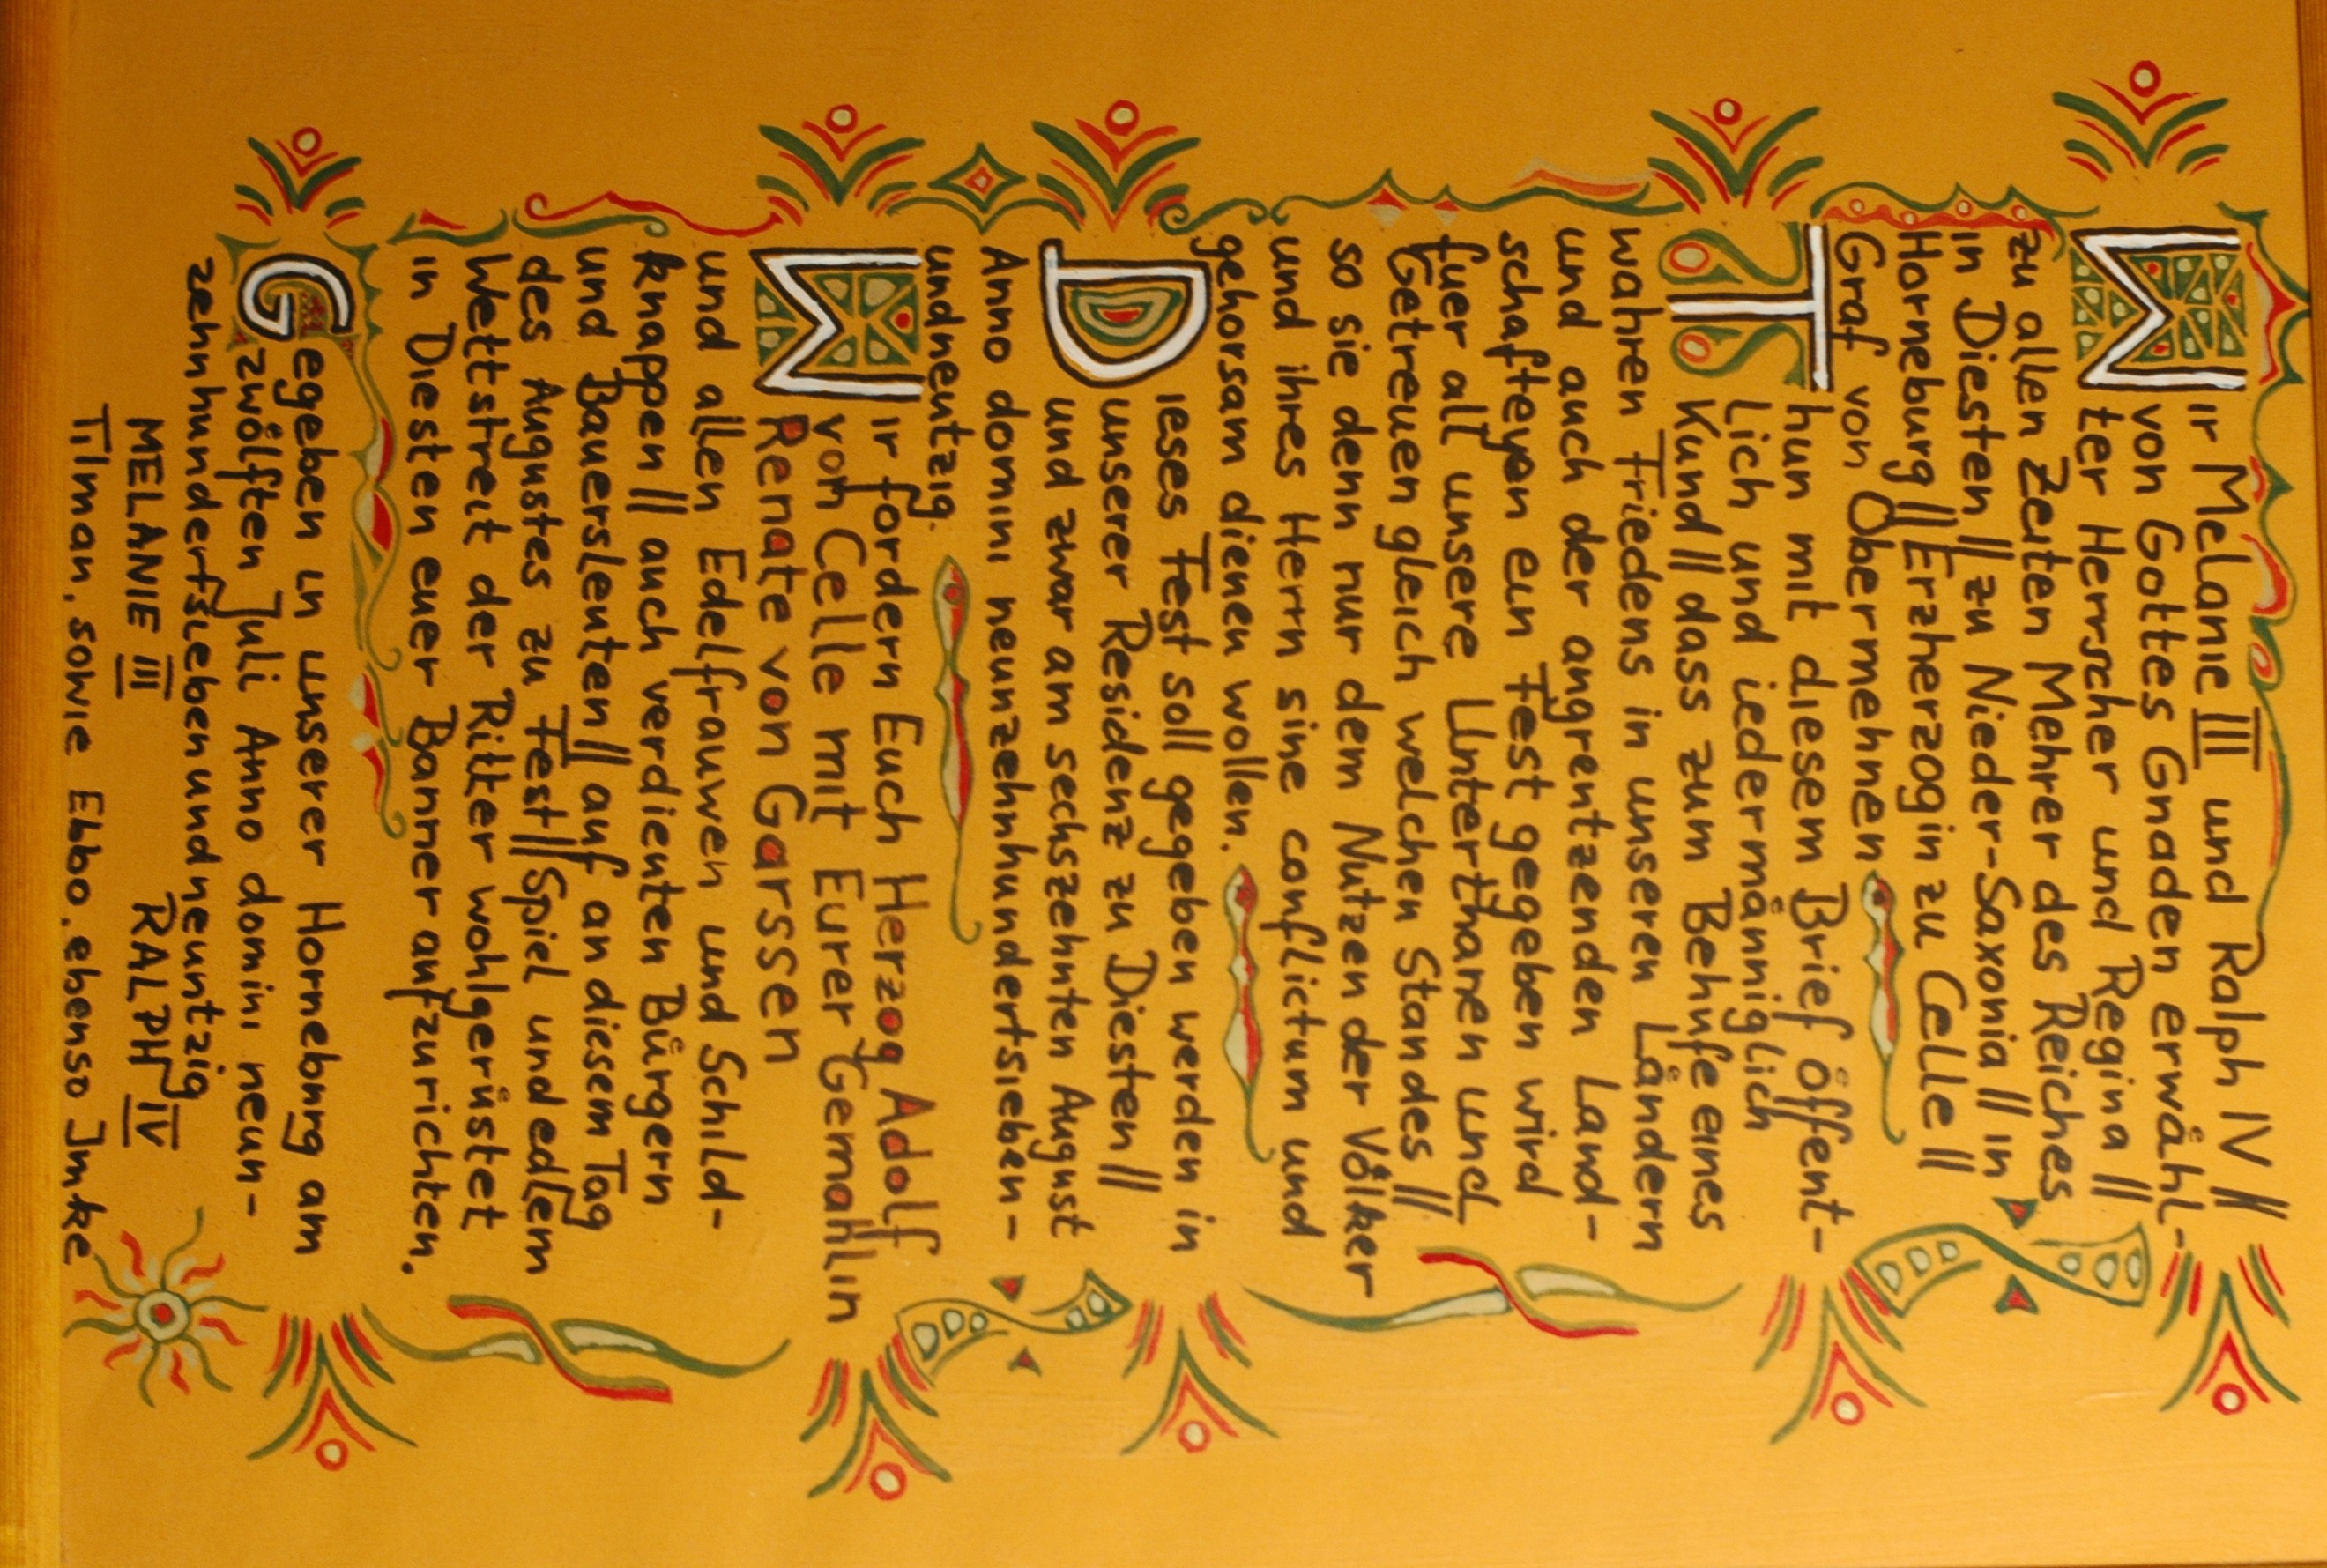 Wir Melanie III und Ralph IV //
von Gottes Gnaden erwåhl-
ter Herrscher und Regina //
zu allen Zeiten Mehrer des Reiches
in Diesten // zu Nieder-Saxonia // in
Horneburg // Erzherzogin zu Celle //
Graf von Obermehnen
Thun mit diesem Brief öffent-
Lich und iedermånniglich
Kund // dass zum Behufe eines
wahren Friedens in unseren Låndern
und auch der angrentzenden Land-
schafteyen ein Fest gegeben wird
fuer all unsere Unterthanen und
Getreuen gleich welchen Standes //
so sie denn nur dem Nutzen der Völker
und ihres Herrn sine conflictum und
gehorsam dienen wollen.
Dieses Fest soll gegeben werden in
unserer Residenz zu Diesten //
und zwar am sechszehnten August
Anno domini neunzehnhundertsieben-
undneuntzig.
Wir fordern Euch Herzog Adolf
von Celle mit Eurer Gemahlin
Renate von Garssen
und allen Edelfrauwen und Schild-
knappen // auch verdienten Bürgern
und Bauersleuten // auf an diesem Tag
des Augustes zu Fest // Spiel und edlem
Wettstreit der Ritter wohlgerüstet
in Diesten euer Banner aufzurichten.
Gegeben in unserer Horneburg am
zwölften Juli Anno domini neun-
zehnhundertsiebenundneuntzig
MELANIE III RALPH IV
Tilman. sowie Ebbo. ebenso Imke